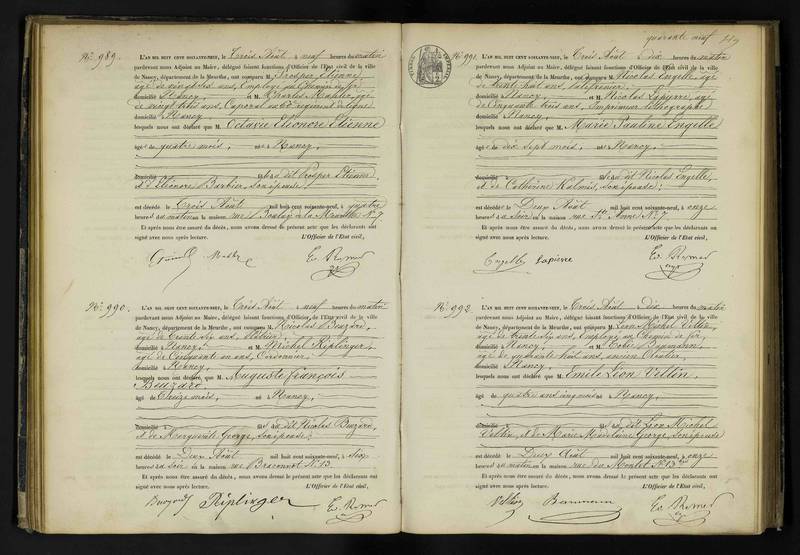 N° 989.
L'AN MIL HUIT CENT SOIXANTE-NEUF, le Trois Août à neuf heures du matin
pardevant nous Adjoint au Maire, délégué faisant fonctions d'Officier de l'Etat civil de la ville
de Nancy, département de la Meurthe, ont comparu M. Prosper Etienne,
âgé de ans, Employé au Chemin de fer
domicilié à Nancy, et M. Charles âgé
de vingt trois ans, Caporal au régiment de ligne
domicilié à Nancy
lesquels nous ont déclaré que M. Octavie Eléonore Etienne
âgé de quatre mois, né à Nancy,
domicilié à dit Prosper Etienne,
et d'Eléonore Barbier, son épouse;
est décédé le Trois Août mil huit cent soixante-neuf, à quatre
heures du matin en la maison rue Boulay de la Meurthe N° 7
Et après nous être assuré du décès, nous avons dressé le présent acte que les déclarants ont
signé avec nous après lecture. L'Officier de l'Etat civil,
N° 990.
L'AN MIL HUIT CENT SOIXANTE-NEUF, le Trois Août à neuf heures du matin
pardevant nous Adjoint au Maire, délégué faisant fonctions d'Officier de l'Etat civil de la ville
de Nancy, département de la Meurthe, ont comparu M. Nicolas Buzard,
âgé de trente ans,
domicilié à Nancy, et M. Michel Riplinger,
âgé de Cinquante un ans, Cordonnier,
domicilié à Nancy,
lesquels nous ont déclaré que M. Auguste François
Buzard
âgé de Treize mois, né à Nancy,
domicilié à fils dudit Nicolas Buzard,
et de Marguerite George, son épouse;
est décédé le Deux Août mil huit cent soixante-neuf, à Six
heures du soir en la maison rue Braconnot N° 13.
Et après nous être assuré du décès, nous avons dressé le présent acte que les déclarants ont
signé avec nous après lecture. L'Officier de l'Etat civil,
Riplinger
quarante neuf
N° 991.
L'AN MIL HUIT CENT SOIXANTE-NEUF, le Trois Août à Dix heures du matin
pardevant nous Adjoint au Maire, délégué faisant fonctions d'Officier de l'Etat civil de la ville
de Nancy, département de la Meurthe, ont comparu M. Nicolas Engelle, âgé
de trente huit ans, palefrenier,
domicilié à Nancy, et M. Nicolas Lapierre, âgé
de Cinquante trois ans, Imprimeur lithographe
domicilié à Nancy
lesquels nous ont déclaré que M. Marie Pauline Engelle
âgé de dix sept mois, né à Nancy,
domicilié à dit Nicolas Engelle,
et de Catherine son épouse;
est décédé le Deux Août mil huit cent soixante-neuf, à onze
heures du soir en la maison rue Ste Anne N° 7.
Et après nous être assuré du décès, nous avons dressé le présent acte que les déclarants ont
signé avec nous après lecture. L'Officier de l'Etat civil,
Engelle Lapierre
N° 992.
L'AN MIL HUIT CENT SOIXANTE-NEUF, le Trois Août à Dix heures du matin
pardevant nous Adjoint au Maire, délégué faisant fonctions d'Officier de l'Etat civil de la ville
de Nancy, département de la Meurthe, ont comparu M. Léon Michel
âgé de trente six ans, Employé au Chemin de fer,
domicilié à Nancy, et M. Baumann,
âgé de quarante huit ans, ancien
domicilié à Nancy,
lesquels nous ont déclaré que M. Emile Léon
âgé de quatre ans cinq mois né à Nancy,
domicilié à fils dudit Léon Michel
et de Marie Madeleine George, son épouse
est décédé le Deux Août mil huit cent soixante-neuf, à onze
heures du matin en la maison rue du Montet N° 13
Et après nous être assuré du décès, nous avons dressé le présent acte que les déclarants ont
signé avec nous après lecture. L'Officier de l'Etat civil,
Baumann